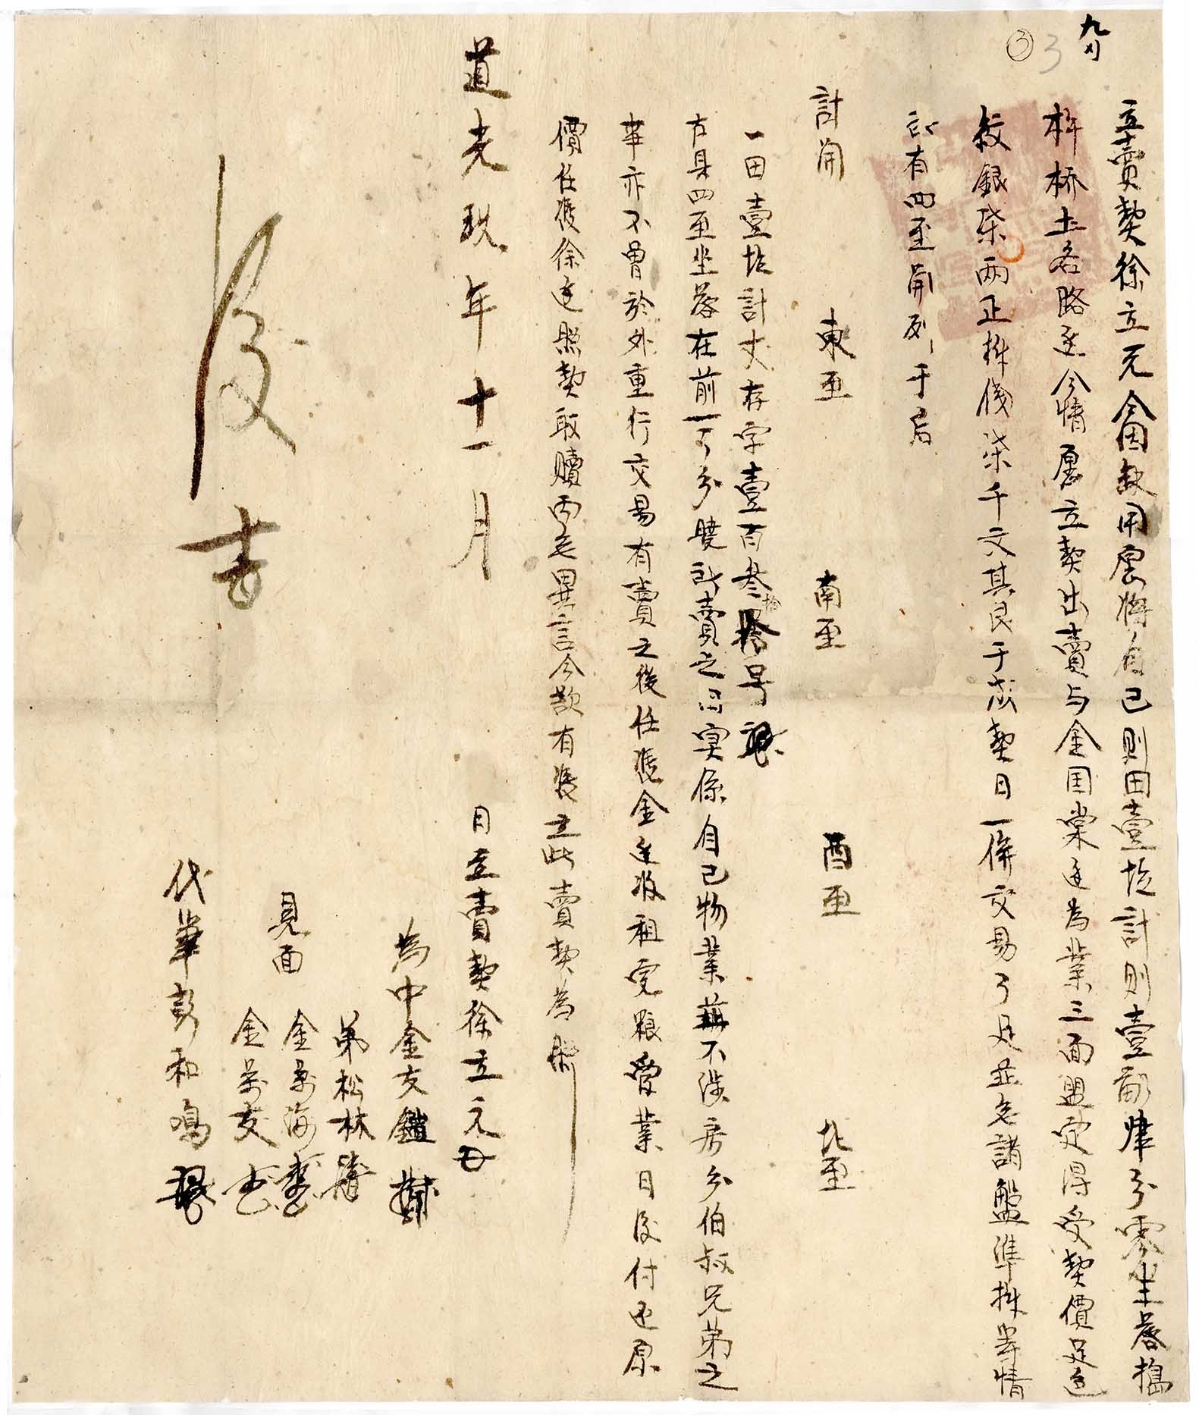 九号
③ 3
立賣契徐立元今因缺用愿將自己則田壹坵計則壹畝肆分零坐落搗
桥土名路邊今情愿立契出賣与金国棠边為業三面盟定得受契價足色
紋銀柒兩正折錢柒千文其艮于成契日一併交易了足並無諸盤準折等情
所有四至開列于后
計開 東至 南至 酉至 北至
一田壹坵計丈存字壹百叁拾号
右具四至坐落在前一了分曉所賣之田寔係自己物業並不涉房分伯叔兄弟之
事亦不曾於外重行交易有賣之後任憑金边收租完粮管業日后付还原
價任憑徐边照契取贖两无異言今欲有憑立此賣契為照
道光玖年十一月 日立賣契徐立元
為中金友鑑
弟松林
見面 金万海
金万友
代筆彭和鳴
後吉